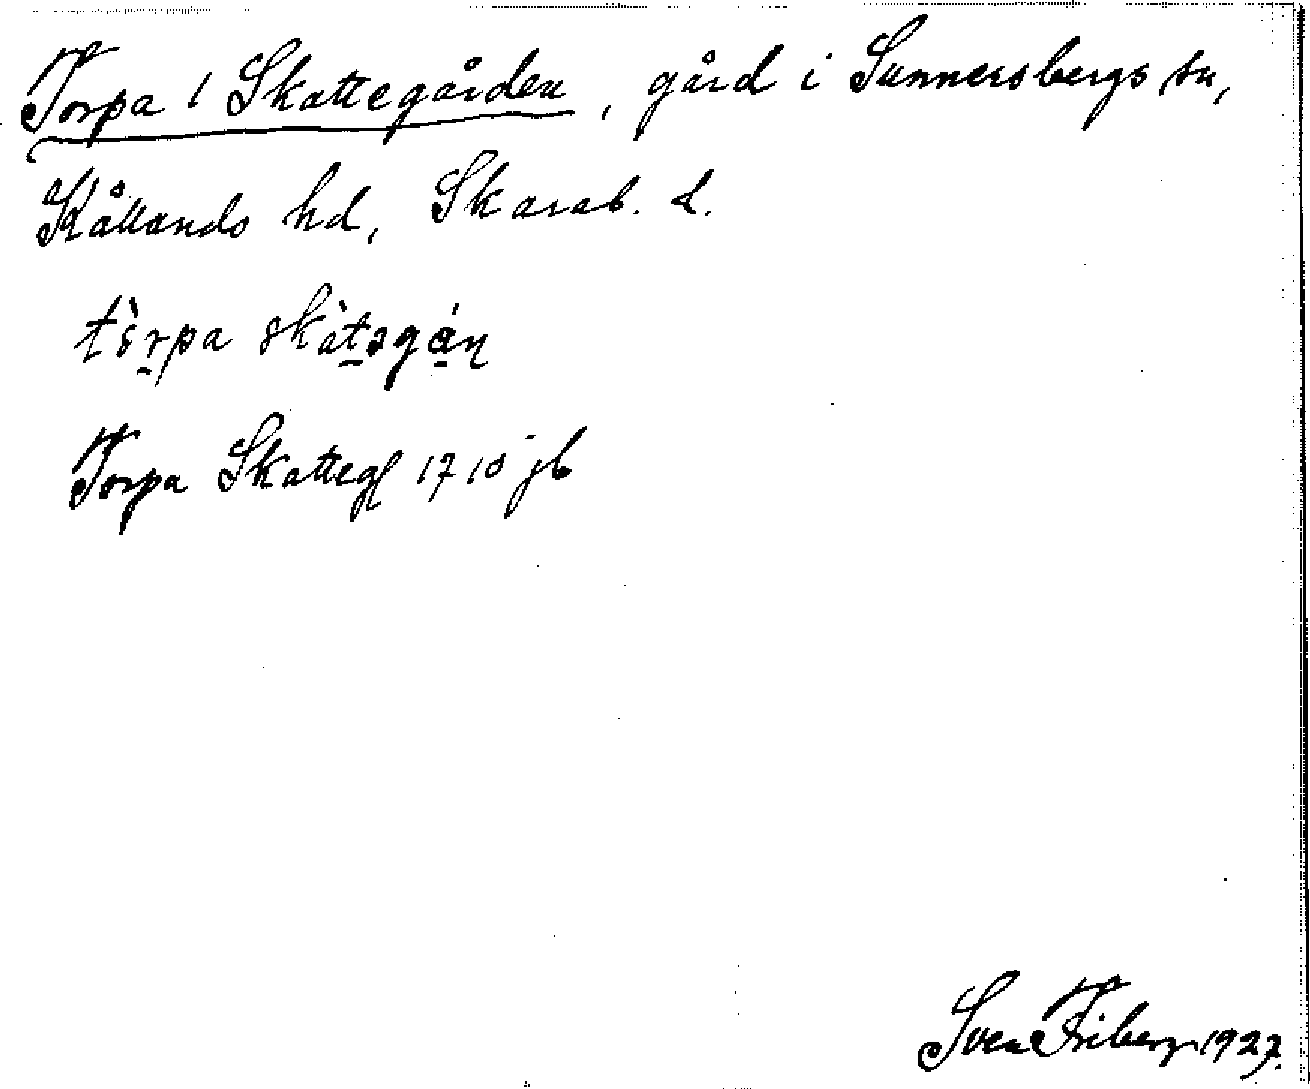 Torpa 1 Skattegården, gård i Sunnersbergs sn,
Kållands hd, Skarab. l.
tɵ̀r̠pa skàt̠əgǻ̠ɳ
Torpa Skatteg 1710 jb
Sven Friberg 1927.